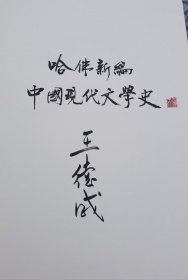 哈佛新編
中國現代文學史
王德威